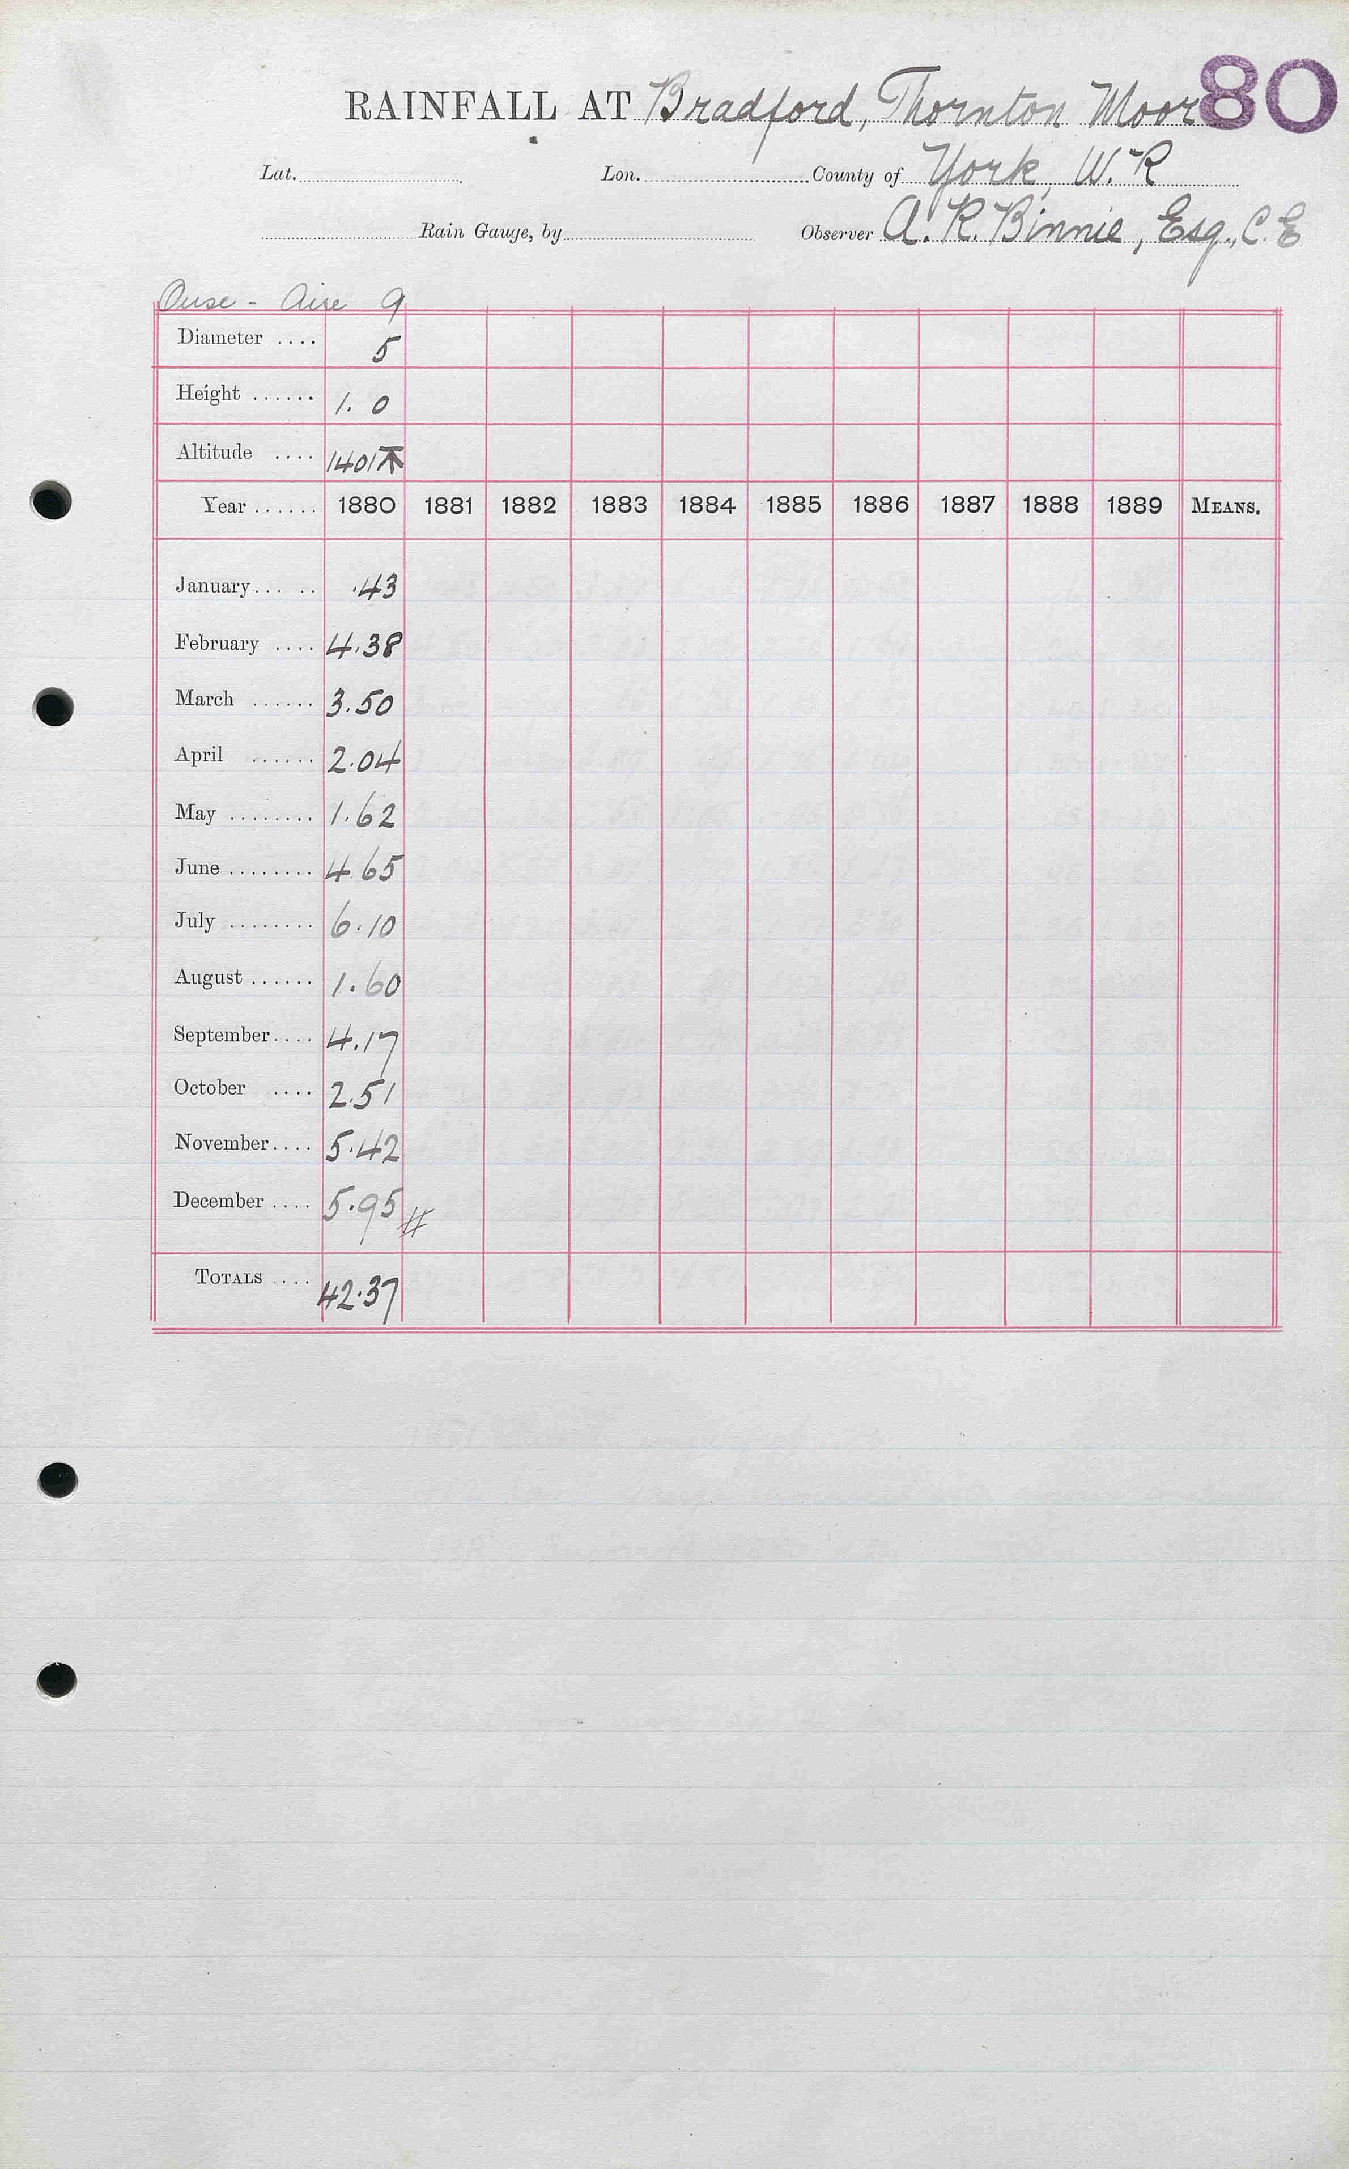 RAINFALL AT Bradford, Thornton Moor 80
Lat. Lon. County of York, W.R
Rain Gauge, by Observer A. R. Binnie, Esq., C.E
Ouse - Aire 9
Diameter .... 5
Height ...... 1. 0
Altitude .... 1401
Year ...... 1880 1881 1882 1883 1884 1885 1886 1887 1888 1889 MEANS.
January... .. .43
February .... 4.38
March ...... 3.50
April ...... 2.04
May ........ 1.62
June ........ 4.65
July ........ 6.10
August ...... 1.60
September.... 4.17
October .... 2.51
November.... 5.42
December .... 5.95 #
TOTALS .... 42.37